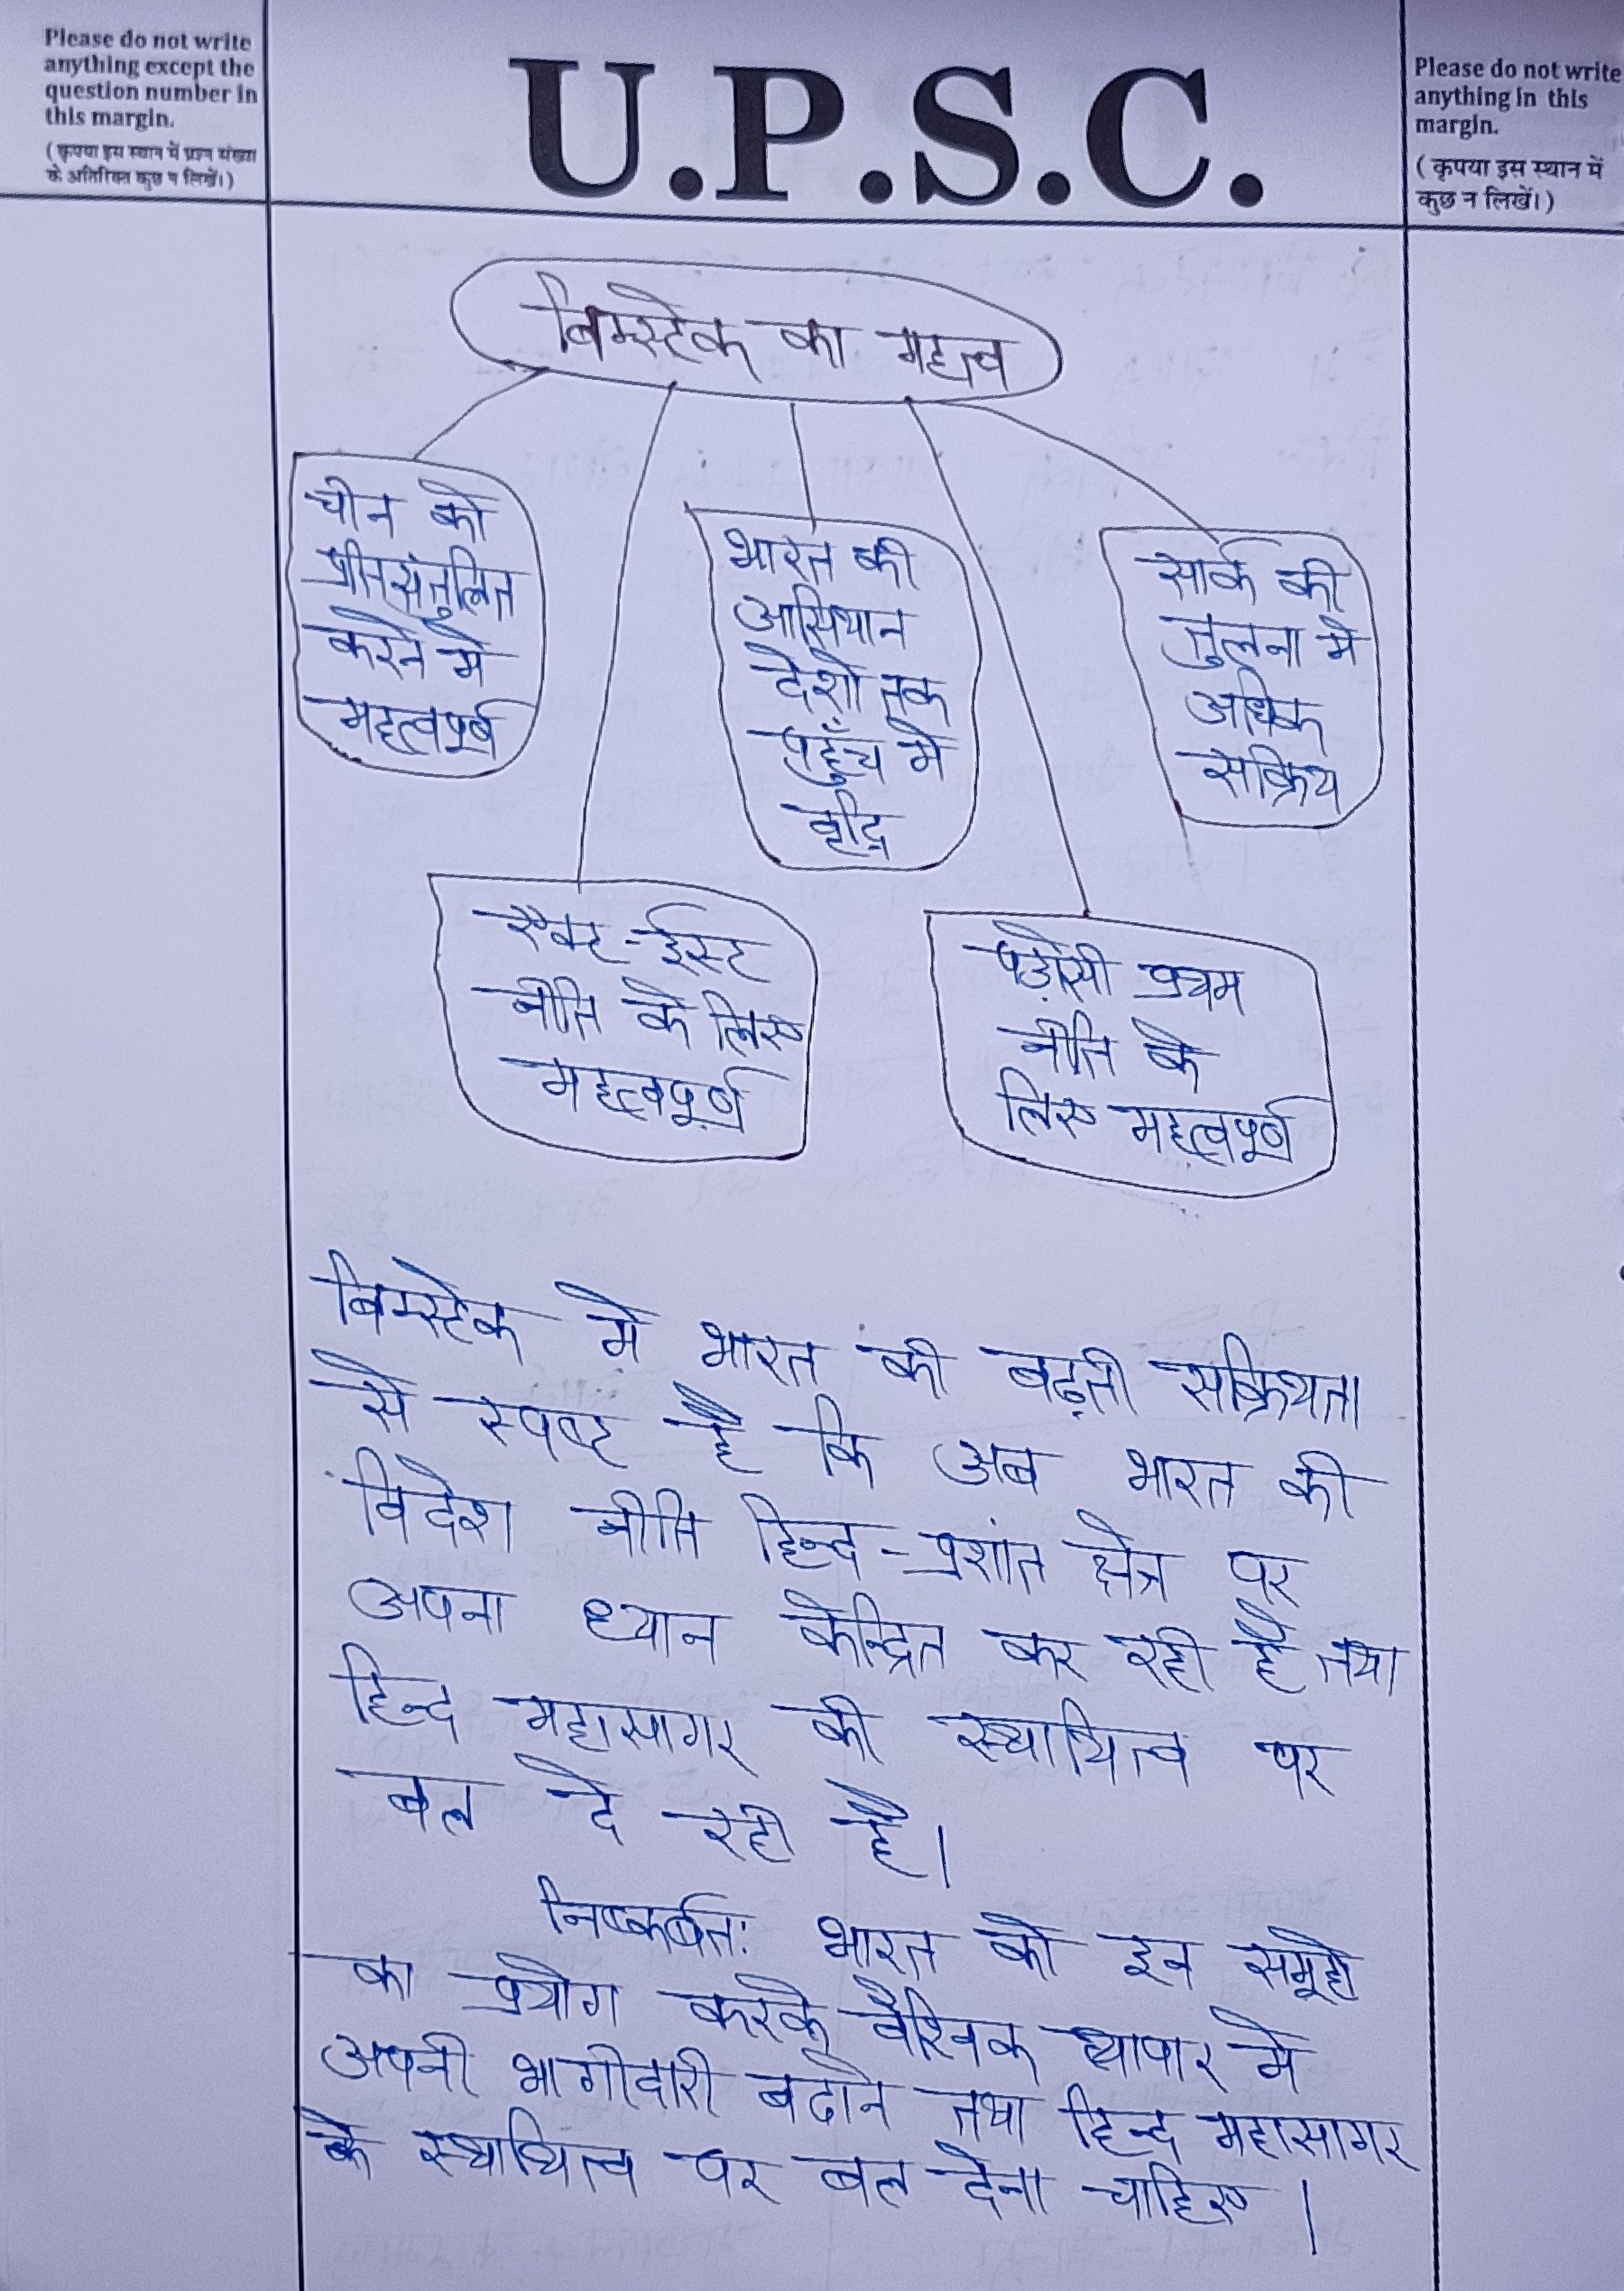 Please do not write
anything except the
question number in
this margin.
(कृपया इस स्थान में प्रश्न संख्या
के अतिरिक्त कुछ न लिखें।)
U.P.S.C.
Please do not write
anything in this
margin.
(कृपया इस स्थान में
कुछ न लिखें।)
बिम्स्टेक का महत्व
चीन को
प्रतिसंतुलित
करने मे
महत्वपूर्ण
भारत की
आसियान
देशो तक
पहुँच मे
वृद्धि
सार्क की
तुलना मे
अधिक
सक्रिय
एक्ट-ईस्ट
नीति के लिए
महत्वपूर्ण
पड़ोसी प्रथम
नीति के
लिए महत्वपूर्ण
बिम्स्टेक मे भारत की बढ़ती सक्रियता
से स्पष्ट है कि अब भारत की
विदेश नीति हिन्द-प्रशांत क्षेत्र पर
अपना ध्यान केन्द्रित कर रही है तथा
हिन्द महासागर की स्थायित्व पर
बल दे रही है।
निष्कर्षत: भारत को इन समूहो
का प्रयोग करके वैश्विक व्यापार मे
अपनी भागीदारी बढाने तथा हिन्द महासागर
के स्थायित्व पर बल देना चाहिए।